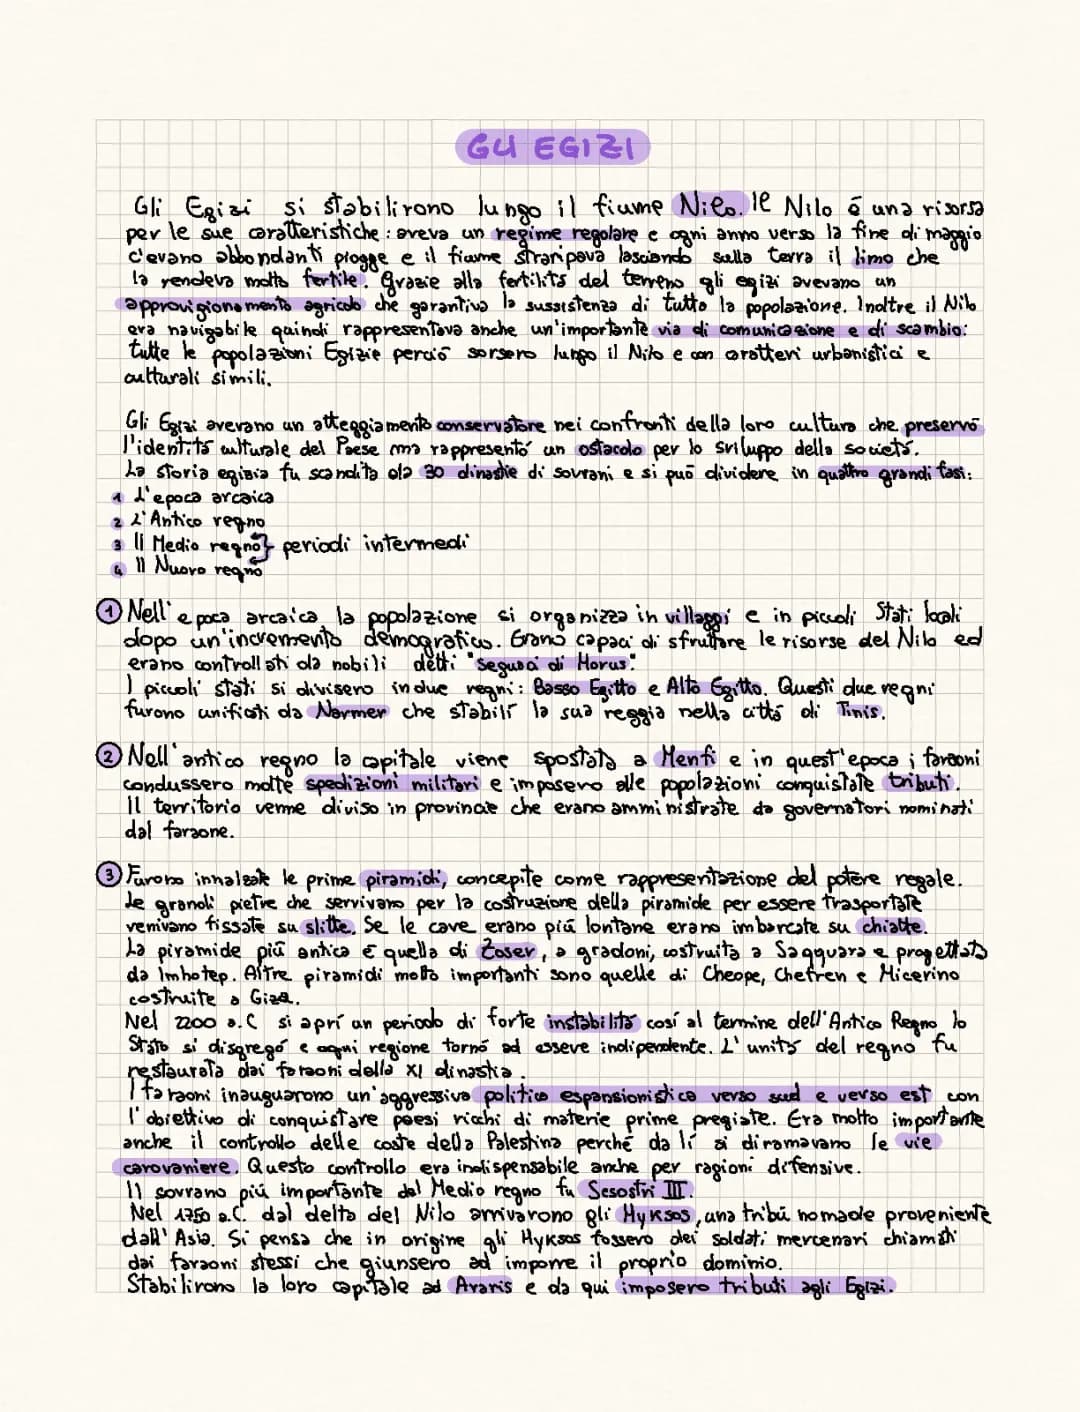 GLI EGIZI
Gli Egizi si stabilirono lungo il fiume Nilo. Il Nilo è una risorsa
per le sue caratteristiche: aveva un regime regolare e ogni anno verso la fine di maggio
c'evano abbondanti piogge e il fiume straripava lasciando sulla terra il limo che
la rendeva molto fertile. Grazie alla fertilità del terreno gli egizi avevano un
approvigionamento agricolo che garantiva la sussistenza di tutta la popolazione. Inoltre il Nilo
era navigabile quindi rappresentava anche un'importante via di comunicazione e di scambio:
tutte le popolazioni Egizie perciò sorsero lungo il Nilo e con caratteri urbanistici e
culturali simili.
Gli Egizi avevano un atteggiamento conservatore nei confronti della loro cultura che preservò
l'identità culturale del Paese ma rappresentò un ostacolo per lo sviluppo della società.
La storia egizia fu scandita da 30 dinastie di sovrani e si può dividere in quattro grandi fasi:
1 L'epoca arcaica
2 L'Antico regno
3 Il Medio regno } periodi intermedi
4 Il Nuovo regno
1 Nell'epoca arcaica la popolazione si organizza in villaggi e in piccoli Stati locali
dopo un'incremento demografico. Erano capaci di sfruttare le risorse del Nilo ed
erano controllati da nobili detti "seguaci di Horus".
I piccoli stati si divisero in due regni: Basso Egitto e Alto Egitto. Questi due regni
furono unificati da Narmer che stabilì la sua reggia nella città di Tinis.
2 Nell'antico regno la capitale viene spostata a Menfi e in quest'epoca i faraoni
condussero molte spedizioni militari e imposero alle popolazioni conquistate tributi.
Il territorio venne diviso in provincie che erano amministrate da governatori nominati
dal faraone.
3 Furono innalzate le prime piramidi, concepite come rappresentazione del potere regale.
Le grandi pietre che servivano per la costruzione della piramide per essere trasportate
venivano fissate su slitte. Se le cave erano più lontane erano imbarcate su chiatte.
La piramide più antica è quella di Zoser, a gradoni, costruita a Saqquara e progettata
da Imhotep. Altre piramidi molto importanti sono quelle di Cheope, Chefren e Micerino
costruite a Giza.
Nel 2200 a.C si aprì un periodo di forte instabilità così al termine dell'Antico Regno lo
Stato si disgregò e ogni regione tornò ad essere indipendente. L'unità del regno fu
restaurata dai faraoni della XI dinastia.
I faraoni inaugurarono un'aggressiva politica espansionistica verso sud e verso est con
l'obiettivo di conquistare paesi ricchi di materie prime pregiate. Era molto importante
anche il controllo delle coste della Palestina perché da lì si diramavano le vie
carovaniere. Questo controllo era indispensabile anche per ragioni difensive.
Il sovrano più importante del Medio regno fu Sesostri III.
Nel 1750 a.C. dal delta del Nilo arrivarono gli Hyksos, una tribù nomade proveniente
dall'Asia. Si pensa che in origine gli Hyksos fossero dei soldati mercenari chiamati
dai faraoni stessi che giunsero ad imporre il proprio dominio.
Stabilirono la loro capitale ad Avaris e da qui imposero tributi agli Egizi.